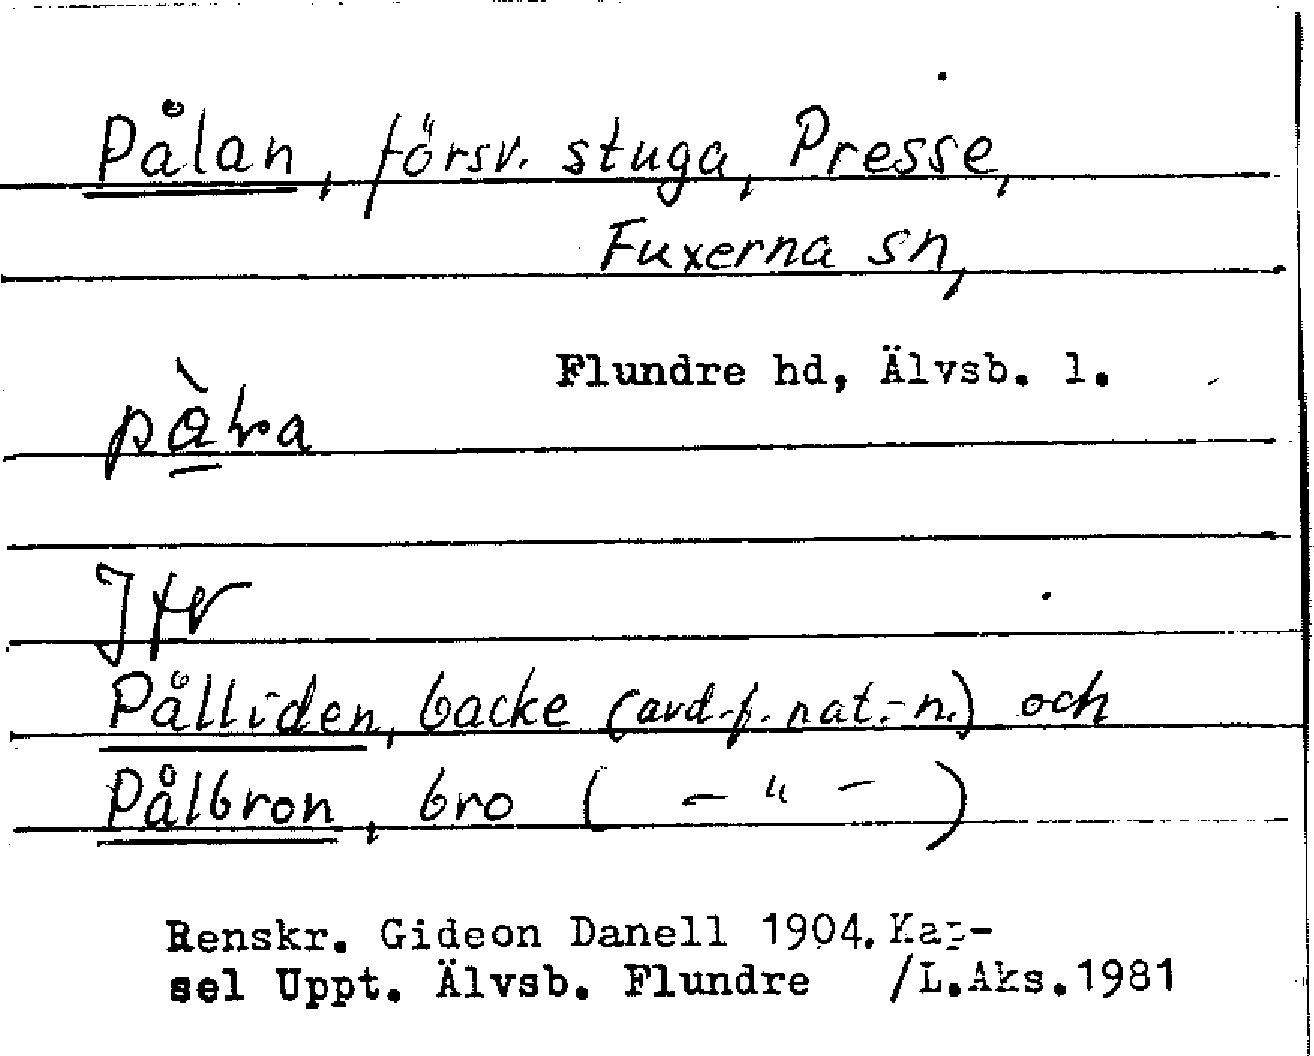 Pålan, försv. stuga, Presse,
Fuxerna sn,
Flundre hd, Älvsb. l.
Jfr
Pålliden, backe (avd. f. nat.-n.) och
Pålbron, bro ( — " — )
Renskr. Gideon Danell 1904. Kap-
sel Uppt. Älvsb. Flundre /L.Aks.1981